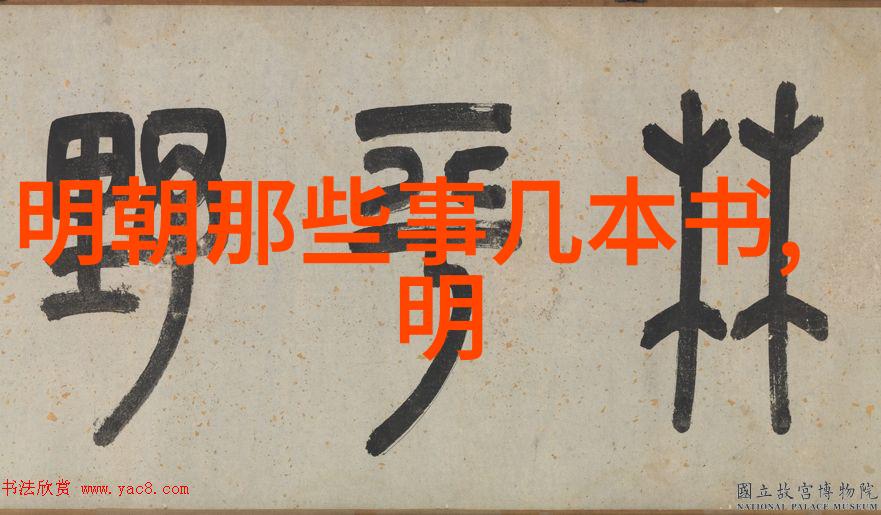 林 野
明朝那些事几本书,
明
书法欣赏 www.yac8.com
國立故宮博物院
NATIONAL PALACE MUSEUM